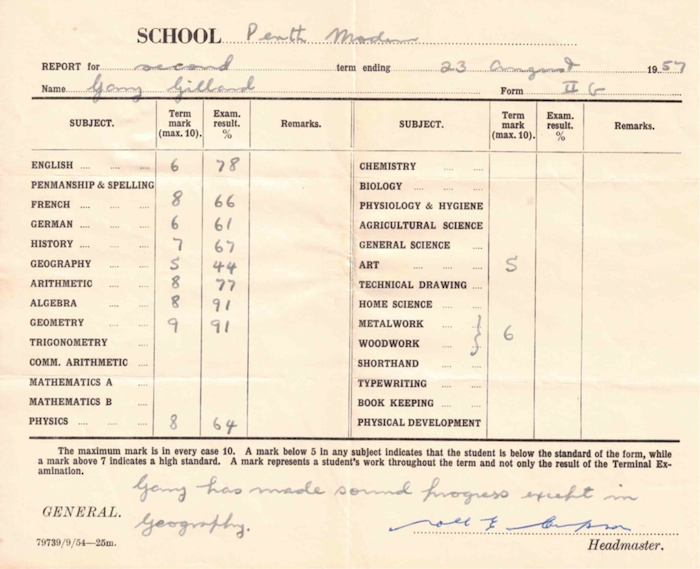 SCHOOL Perth Modern
REPORT for second term ending 23 August 1957
Name Gary Gilland Form II G
SUBJECT. Term mark (max. 10). Exam. result. % Remarks. SUBJECT. Term mark (max. 10). Exam. result. % Remarks.
ENGLISH 6 78 CHEMISTRY
PENMANSHIP & SPELLING BIOLOGY
FRENCH 8 66 PHYSIOLOGY & HYGIENE
GERMAN 6 61 AGRICULTURAL SCIENCE
HISTORY 7 67 GENERAL SCIENCE
GEOGRAPHY 5 44 ART 5
ARITHMETIC 8 77 TECHNICAL DRAWING
ALGEBRA 8 91 HOME SCIENCE
GEOMETRY 9 91 METALWORK
TRIGONOMETRY WOODWORK 6
COMM. ARITHMETIC SHORTHAND
MATHEMATICS A TYPEWRITING
MATHEMATICS B BOOK KEEPING
PHYSICS 8 64 PHYSICAL DEVELOPMENT
The maximum mark is in every case 10. A mark below 5 in any subject indicates that the student is below the standard of the form, while
a mark above 7 indicates a high standard. A mark represents a student's work throughout the term and not only the result of the Terminal Ex-
amination.
Gary has made sound progress except in
GENERAL. Geography.
79739/9/54—25m. Headmaster.